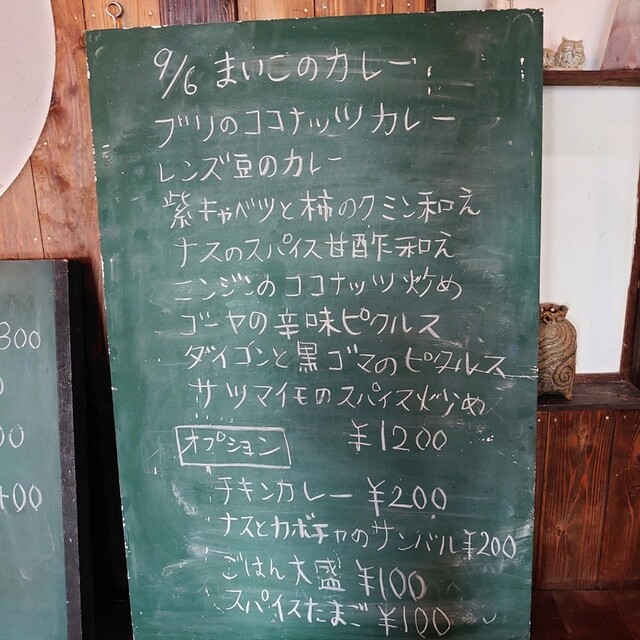 9/6 まいこのカレー
ブリのココナッツカレー
レンズ豆のカレー
紫キャベツと柿のクミン和え
ナスのスパイス甘酢和え
ニンジンのココナッツ炒め
ゴーヤの辛味ピクルス
ダイコンと黒ゴマのピクルス
サツマイモのスパイス炒め
¥1200
オプション
チキンカレー ¥200
ナスとカボチャのサンバル ¥200
ごはん大盛 ¥100
スパイスたまご ¥100
300
0
00
400